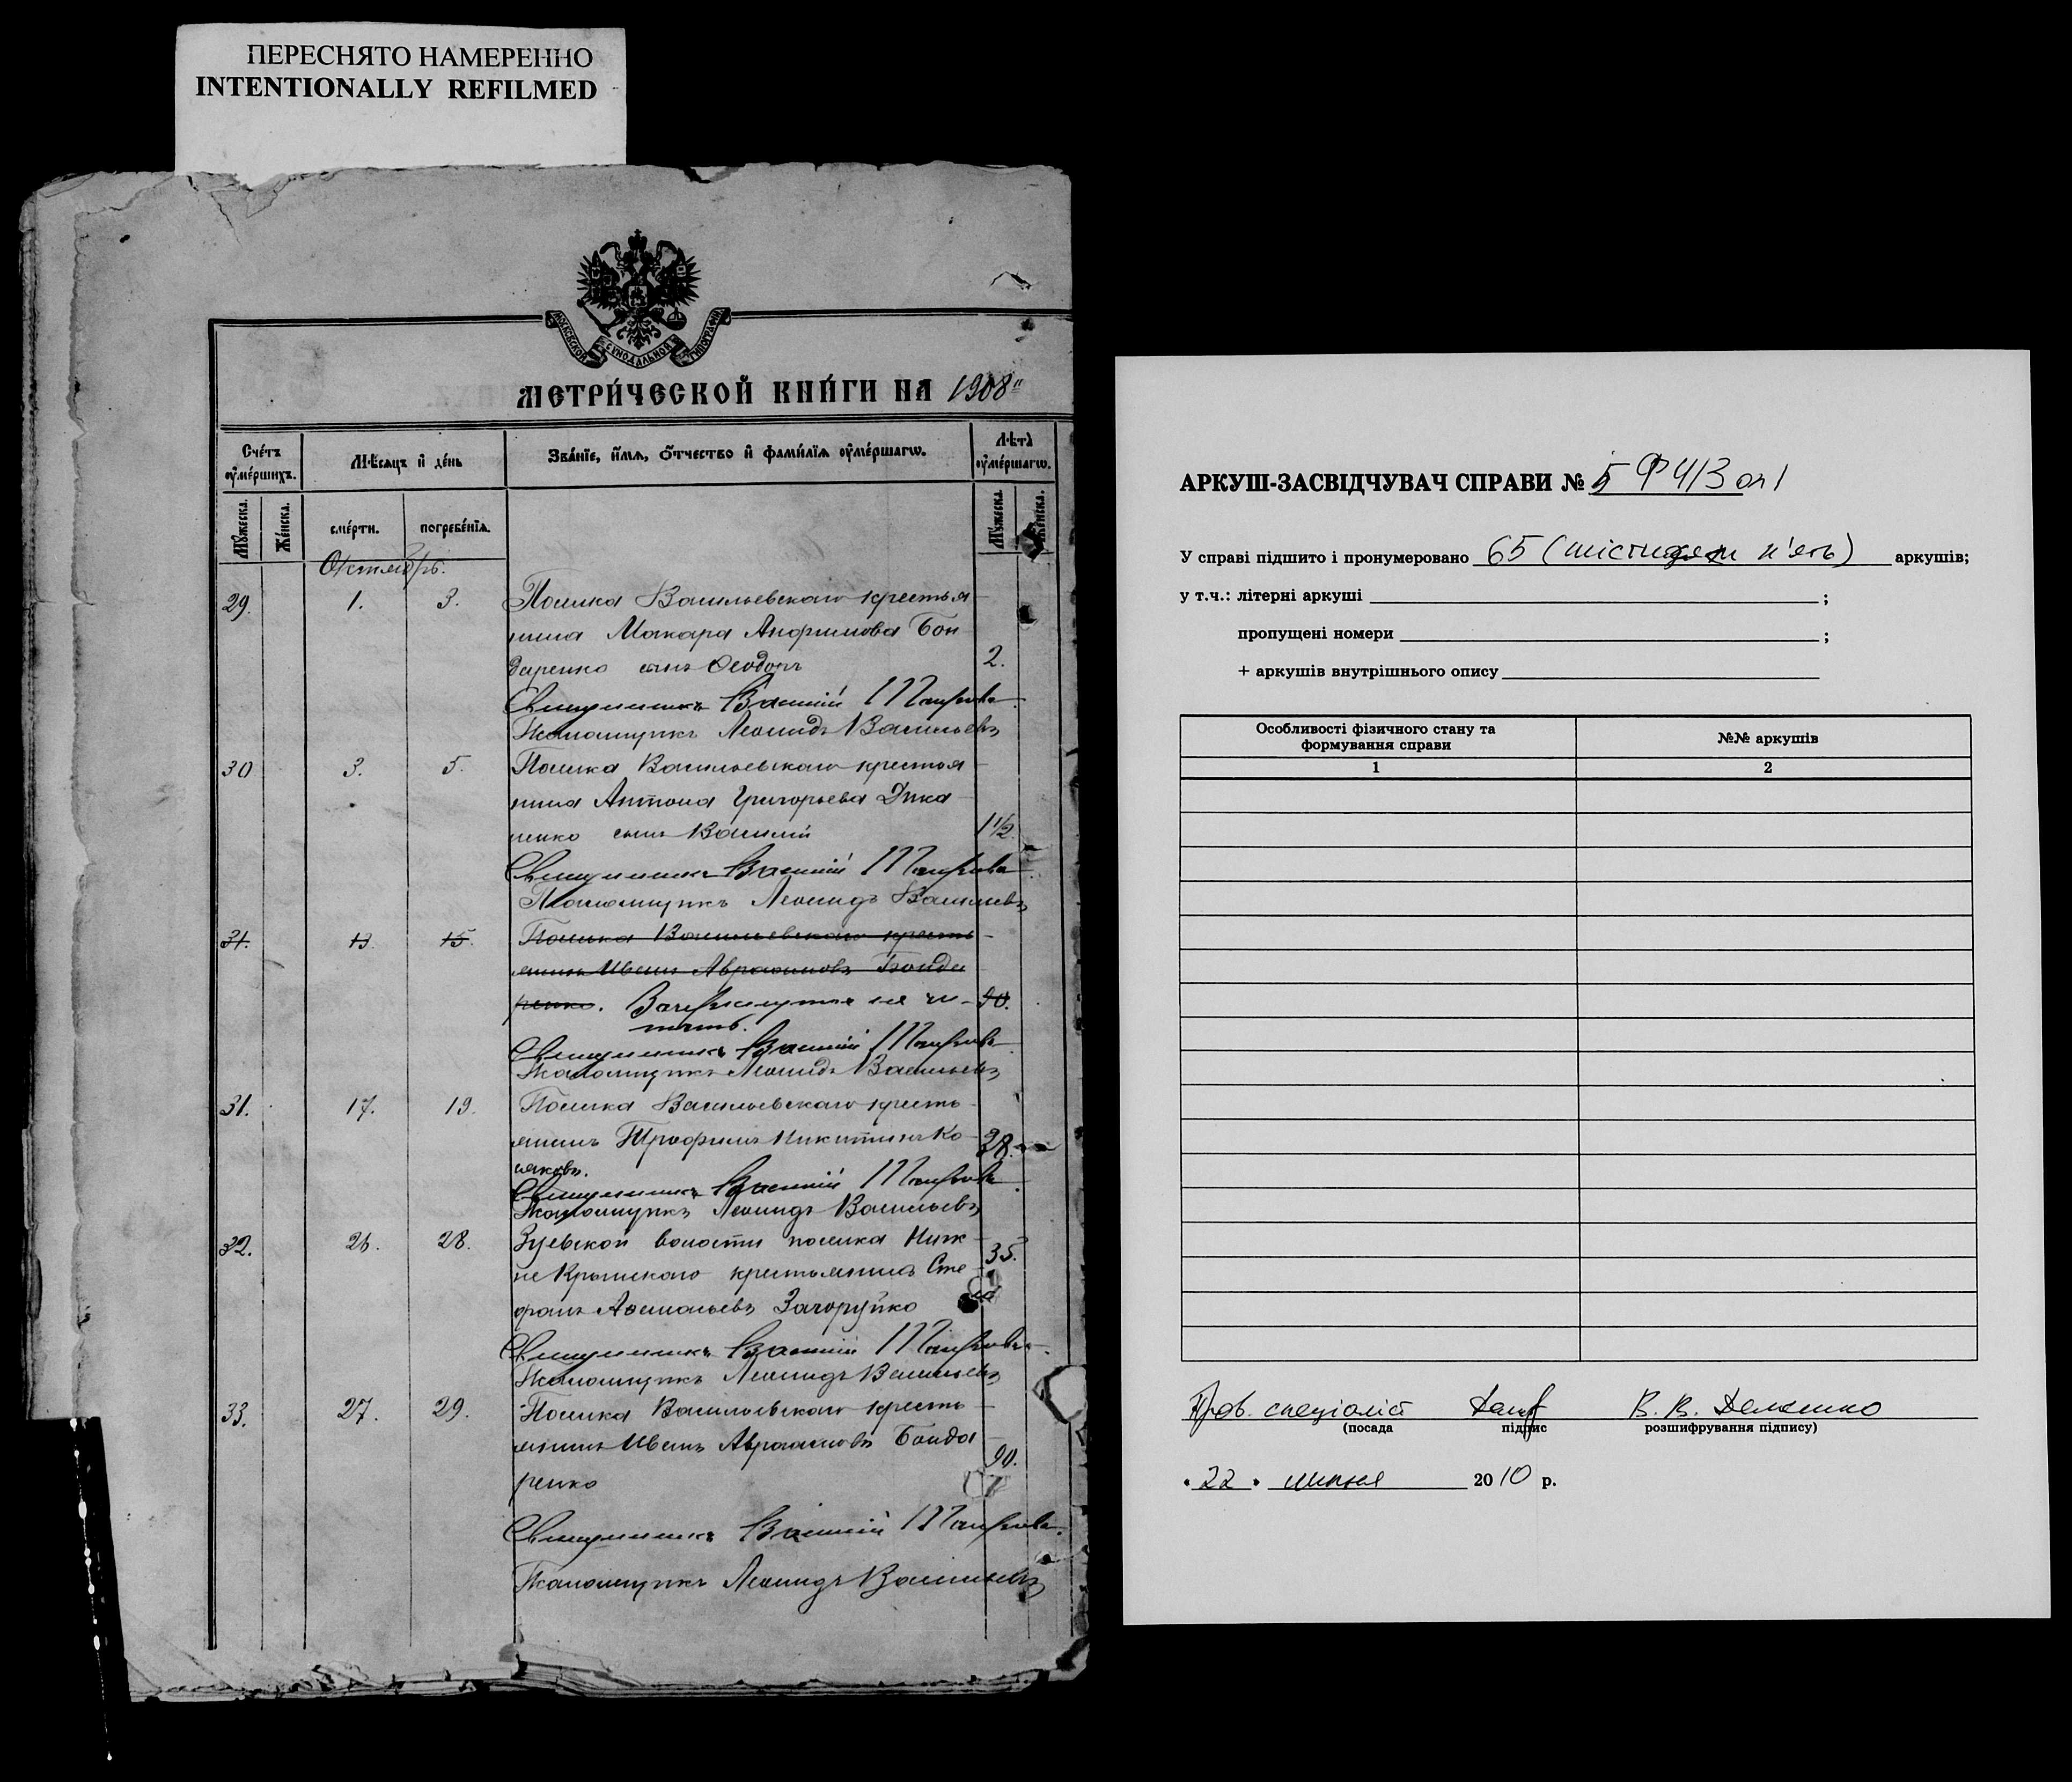 ПЕРЕСНЯТО НАМЕРЕННО
INTENTIONALLY REFILMED
МОСКОВСКОЙ СѴНОДАЛЬНОЙ ТИПОГРАФІИ
МЕТРИ́ЧЕСКОЙ КНИ́ГИ НА 1908
Сче́тъ ᲂу҆ме́ршихъ.
Мѣ́сяцъ и҆ де́нь
Зва́нїе, и҆́мѧ, ѻ҆́тчество и҆ фами́лїѧ ᲂу҆ме́ршагѡ.
Лѣ́та ᲂу҆ме́ршагѡ.
Мꙋ́жеска.
Же́нска.
сме́рти.
погребе́нїѧ.
Мꙋ́жеска.
Же́нска.
Октябрь.
29. 1. 3. Поселка Васильевскаго крестья-
нина Макара Анфимова Бон-
даренко сынъ Ѳеодоръ 2.
Священникъ Василій
Псаломщикъ Леонидъ Васильевъ
30 3. 5. Поселка Васильевскаго крестья-
нина Антона Григорьева Дика-
ненко сынъ Василій 1½.
Священникъ Василій
Псаломщикъ Леонидъ Васильевъ
31. 13. 15. Поселка Васильевскаго кресть-
янинъ Иванъ Авраамовъ Бонда
ренко. Зачеркнутое не чи- 90.
тать.
Священникъ Василій
Псаломщикъ Леонидъ Васильевъ
31. 17. 19. Поселка Васильевскаго кресть-
янинъ Трофимъ Никитинъ Ко-
ляковъ. 28.
Священникъ Василій
Псаломщикъ Леонидъ Васильевъ
32. 26. 28. Зуевской волости поселка Ниж-
не Крынскаго крестьянинъ Сте- 35.
фанъ Загоруйко
Священникъ Василій
Псаломщикъ Леонидъ Васильевъ
33. 27. 29. Поселка Васильевскаго кресть-
янинъ Иванъ Авраамовъ Бонда-
ренко 90.
Священникъ Василій
Псаломщикъ Леонидъ Васильевъ
АРКУШ-ЗАСВІДЧУВАЧ СПРАВИ № 5 Ф 413 оп 1
У справі підшито і пронумеровано 65 (шістидесят п'ять) аркушів;
у т.ч.: літерні аркуші ;
пропущені номери ;
+ аркушів внутрішнього опису
Особливості фізичного стану та
формування справи
№№ аркушів
1
2
Пров. спеціаліст В. В. Деменко
(посада підпис розшифрування підпису)
" 22 " липня 2010 р.